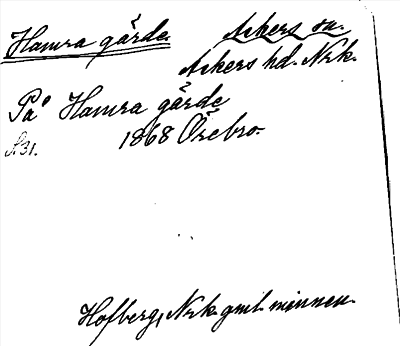 Hamra gärde.
Askers sn.
Askers hd. Nrk.
På Hamra gärde
S. 31.
1868 Örebro.
Hofberg, Nrk. gml. minnen.